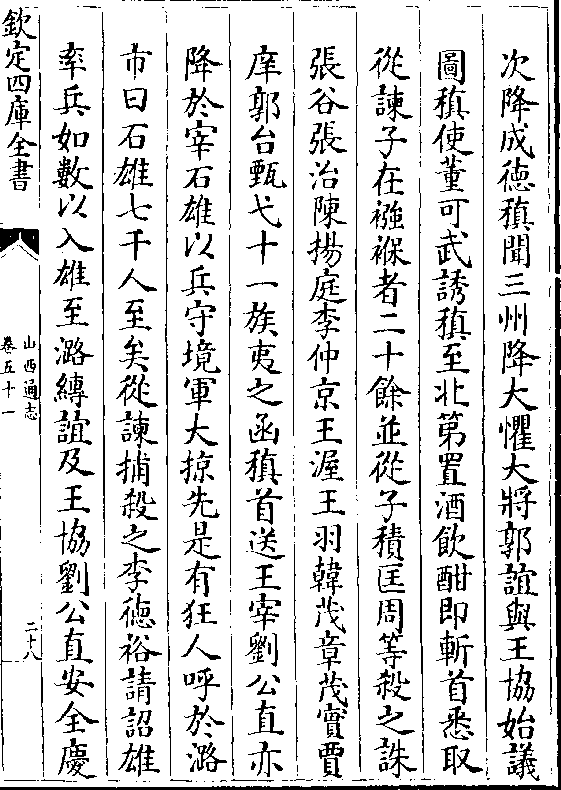 次降成徳稹聞三州降大懼大將郭誼與王協始議
圖稹使董可武誘稹至北第置酒飲酣即斬首悉取
從諫子在襁褓者二十餘並從子積匡周等殺之誅
張谷張沿陳揚庭李仲京王渥王羽韓茂章茂實賈
庠郭台甄戈十一族夷之函稹首送王宰劉公直亦
降於宰石雄以兵守境軍大掠先是有狂人呼於潞
市曰石雄七千人至矣從諫捕殺之李徳裕請詔雄
率兵如數以入雄至潞縛誼及王協劉公直安全慶
欽定四庫全書
山西通志
卷五十一
二十八